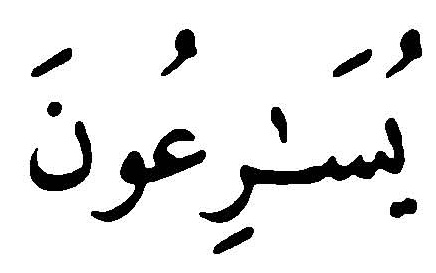 يُسَـٰرِعُونَ